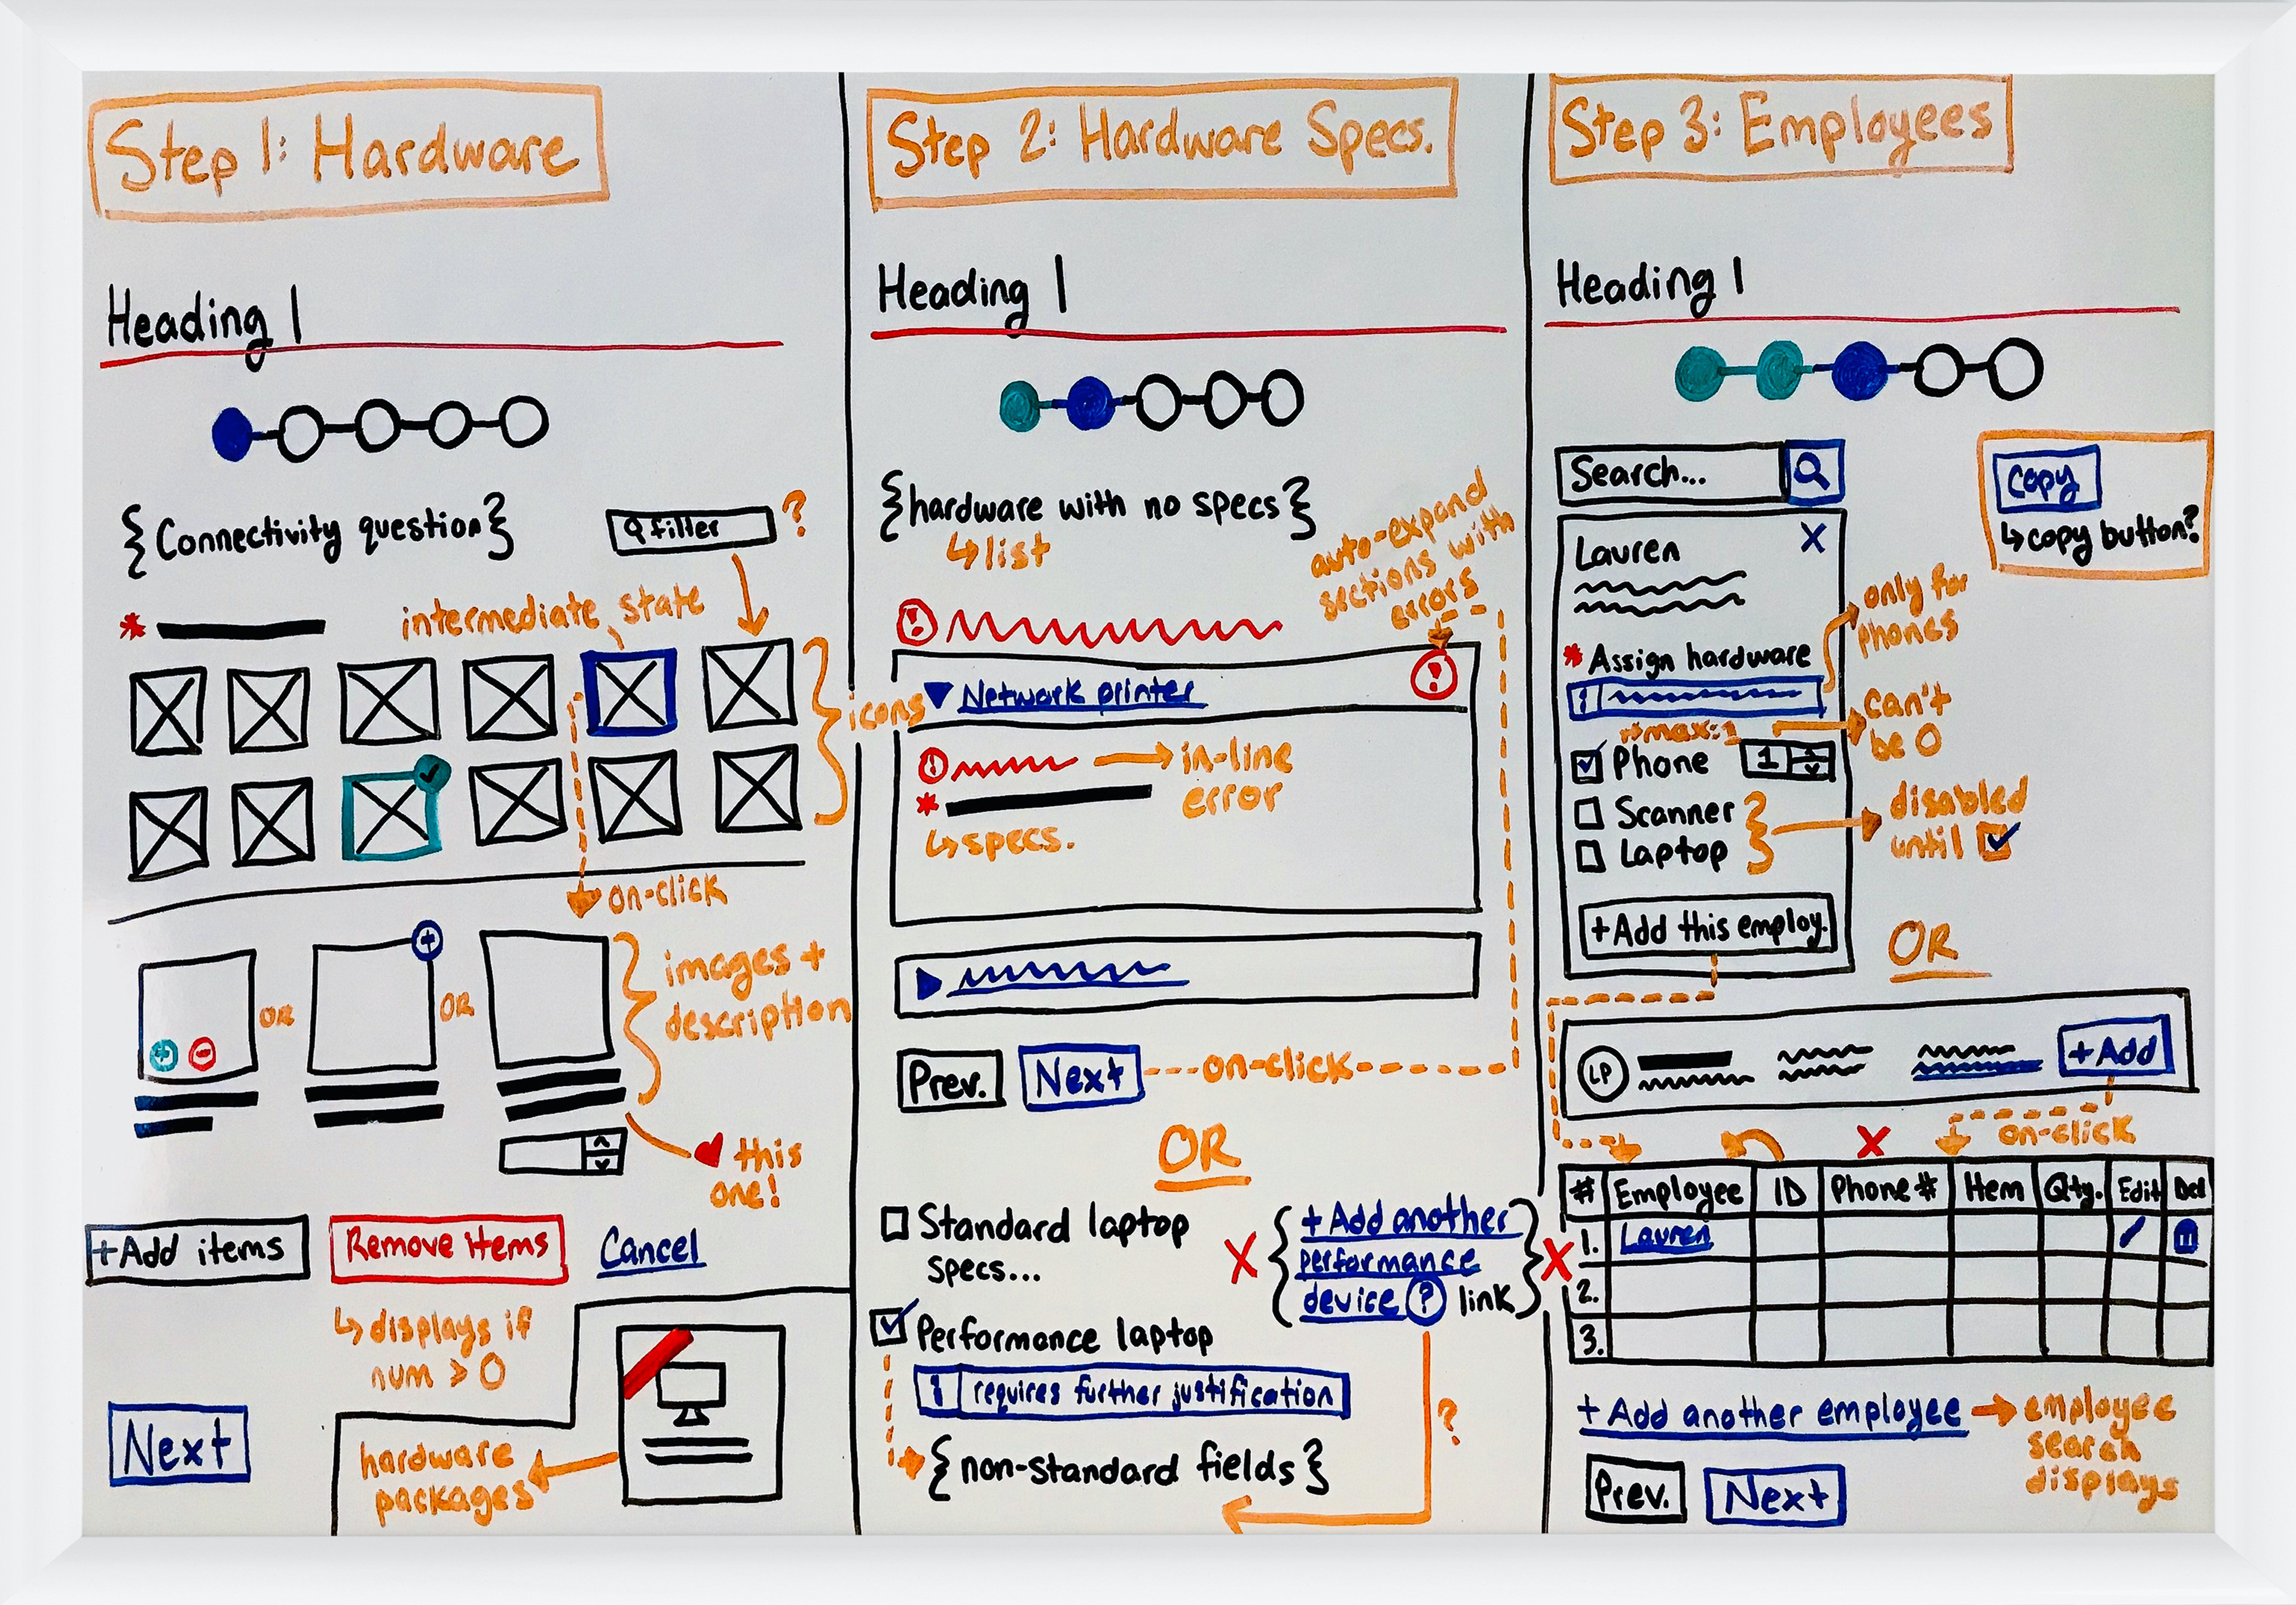 Step 1: Hardware
Heading 1
{Connectivity question}
filter
?
*
intermediate state
icons
on-click
OR
OR
images +
description
♥ this
one!
+Add items
Remove items
Cancel
↳ displays if
num > 0
Next
hardware
packages
Step 2: Hardware Specs.
Heading 1
{hardware with no specs}
↳ list
auto-expand
sections with
errors
!
▼ Network printer
!
!
in-line
error
*
↳ specs.
Prev.
Next
on-click
OR
Standard laptop
specs...
X
{+Add another
performance
device ? link}
X
Performance laptop
i requires further justification
{non-standard fields}
?
Step 3: Employees
Heading 1
Search...
Copy
↳ copy button?
Lauren
X
only for
phones
* Assign hardware
i
max: 1
can't
be 0
Phone
1
Scanner
Laptop
disabled
until
+Add this employ.
OR
LP
+Add
on-click
X
# Employee ID Phone # Item Qty. Edit Del
1. Lauren
2.
3.
+ Add another employee → employee
search
displays
Prev.
Next